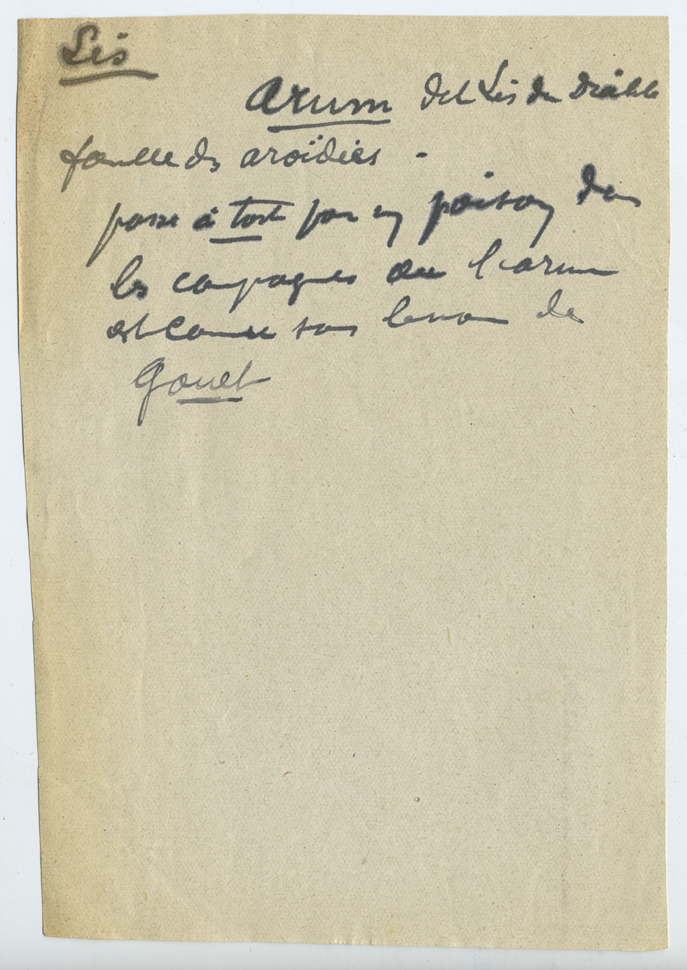 Lis
Arum dit Lis du Diable
famille des aroïdées -
passe à tort pour un poison dans
les campagnes ou l'arum
est connu sous le nom de
Gouet